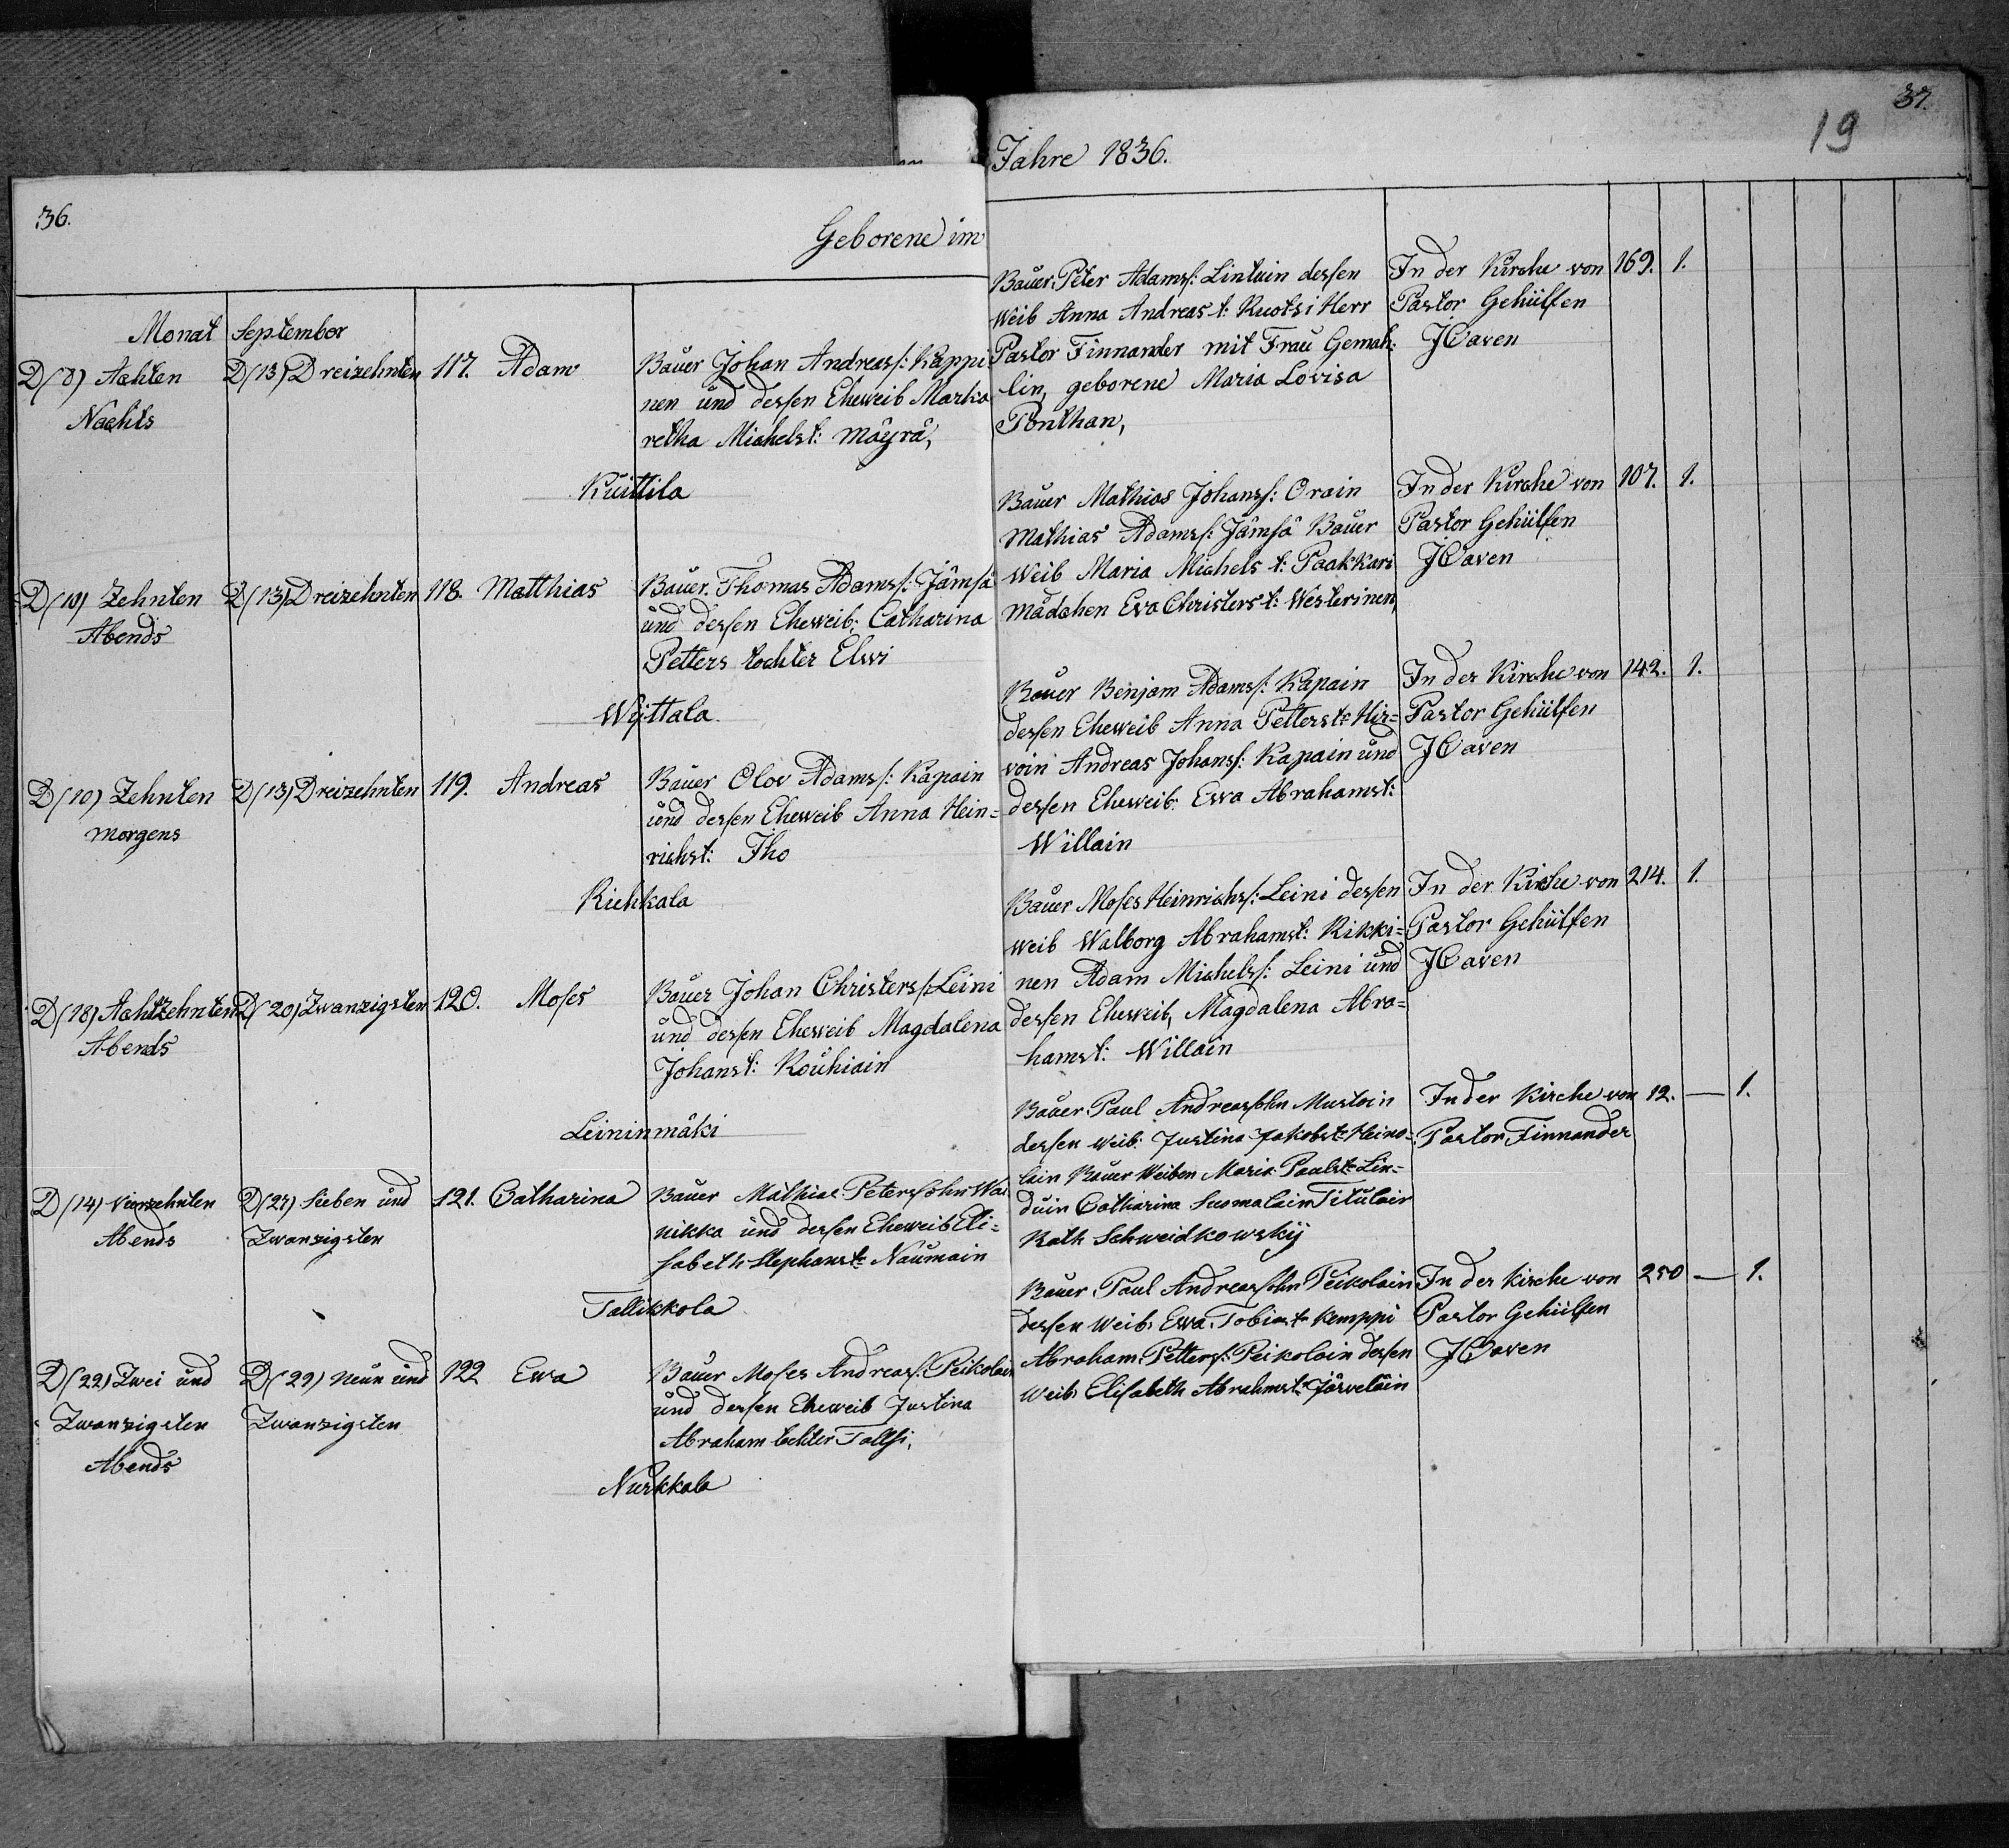 36.
Geborene im
Monat September
D(8) Achten D(13) Dreizehnten 117. Adam Bauer Johan Andreass: Kappi
Nachts nen und dessen Eheweib Marka
retha Michelst: Mäyrä,
Kuittila
D(10) Zehnten D(13) Dreizehnten 118. Matthias Bauer Thomas Adamss: Jämsä
Abends und dessen Eheweib: Catharina
Petters tochter Elwi
Wijttala
D(10) Zehnten D(13) Dreizehnten 119. Andreas Bauer Olov Adamss: Kapain
morgens und dessen Eheweib Anna Hein=
richst: Iho
Riehkala
D(18) Achtzehnten D(20) Zwanzigsten 120. Moses Bauer Johan Christerss: Leini
Abends und dessen Eheweib Magdalena
Johanst: Rouhiain
Leininmäki
D(14) Vierzehnten D(27) Sieben und 121. Catharina Bauer Mathias Peterssohn Wai
Abends Zwanzigsten nikka und dessen Eheweib Eli=
sabeth Stephanst: Naumain
Tallikkola
D(22) Zwei und D(29) Neun und 122 Ewa Bauer Moses Andreass: Peikolain
Zwanzigsten Zwanzigsten und dessen Eheweib Justina
Abends Abraham tochter Tallsi,
Nurkkala
37.
19
Jahre 1836.
Bauer Peter Adamss: Lintuin dessen In der Kirche von 169. 1.
Weib Anna Andreas t: Ruotsi Herr Pastor Gehülfen
Pastor Finnander mit Frau Gemah: J Caven
lin, geborene Maria Lovisa
Ponthan,
Bauer Mathias Johanss: Orain In der Kirche von 107. 1.
Mathias Adamss: Jämsä Bauer Pastor Gehülfen
Weib Maria Michels t: Paakkari J Caven
Mädchen Eva Christers t: Westerinen,
Bauer Benjam Adamss: Kapain In der Kirche von 142. 1.
dessen Eheweib Anna Petterst: Hir= Pastor Gehülfen
voin Andreas Johanss: Kapain und J Caven
dessen Eheweib: Ewa Abrahamst:
Willain
Bauer Moses Heinrichs: Leini dessen In der Kirche von 214. 1.
Weib Walborg Abrahamst: Kikki= Pastor Gehülfen
nen Adam Michelss: Leini und J Caven
dessen Eheweib, Magdalena Abra=
hamst: Willain
Bauer Paul Andreassohn Mustoin In der Kirche von 12. — 1.
dessen Weib: Justina Jakobst: Heino= Pastor Finnander
lain Bauer Weiben Maria Paulst: Lin=
duin Catharina Suomalain Titulair
Rath Schweidkowskij
Bauer Paul Andreassohn Peikolain In der Kirche von 250 — 1.
dessen Weib: Ewa Tobiast: Kemppi Pastor Gehülfen
Abraham Petters: Peikolain dessen J Caven
Weib: Elisabeth Abrahmst: Järveläin